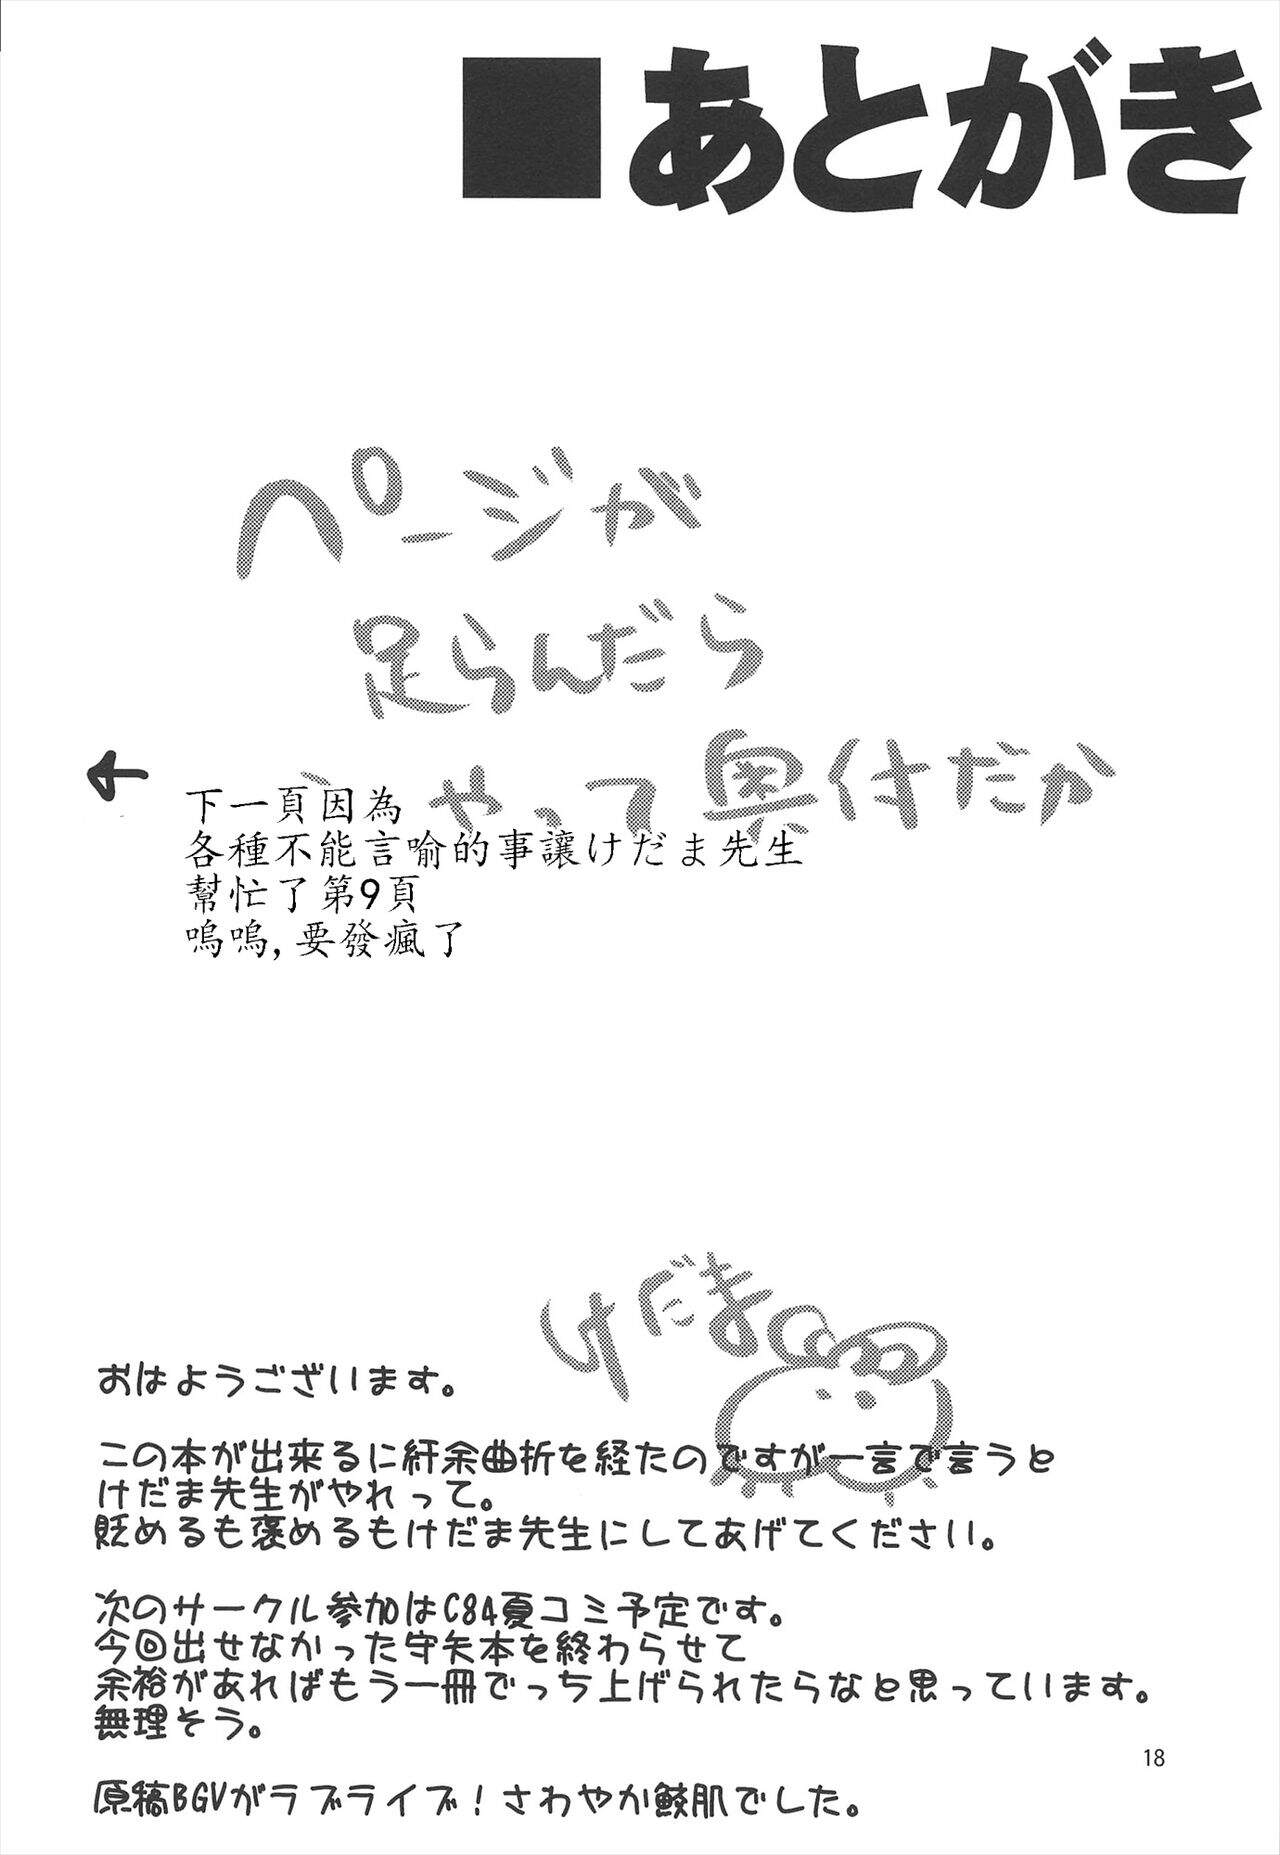 ■あとがき
ページが
足らんだら
やって奥付だか
←
下一頁因為
各種不能言喻的事讓けだま先生
幫忙了第9頁
嗚嗚,要發瘋了
けだま
おはようございます。
この本が出来るに紆余曲折を経たのですが一言で言うと
けだま先生がやれって。
貶めるも褒めるもけだま先生にしてあげてください。
次のサークル参加はC84夏コミ予定です。
今回出せなかった守矢本を終わらせて
余裕があればもう一冊でっち上げられたらなと思っています。
無理そう。
18
原稿BGVがラブライブ!さわやか鮫肌でした。